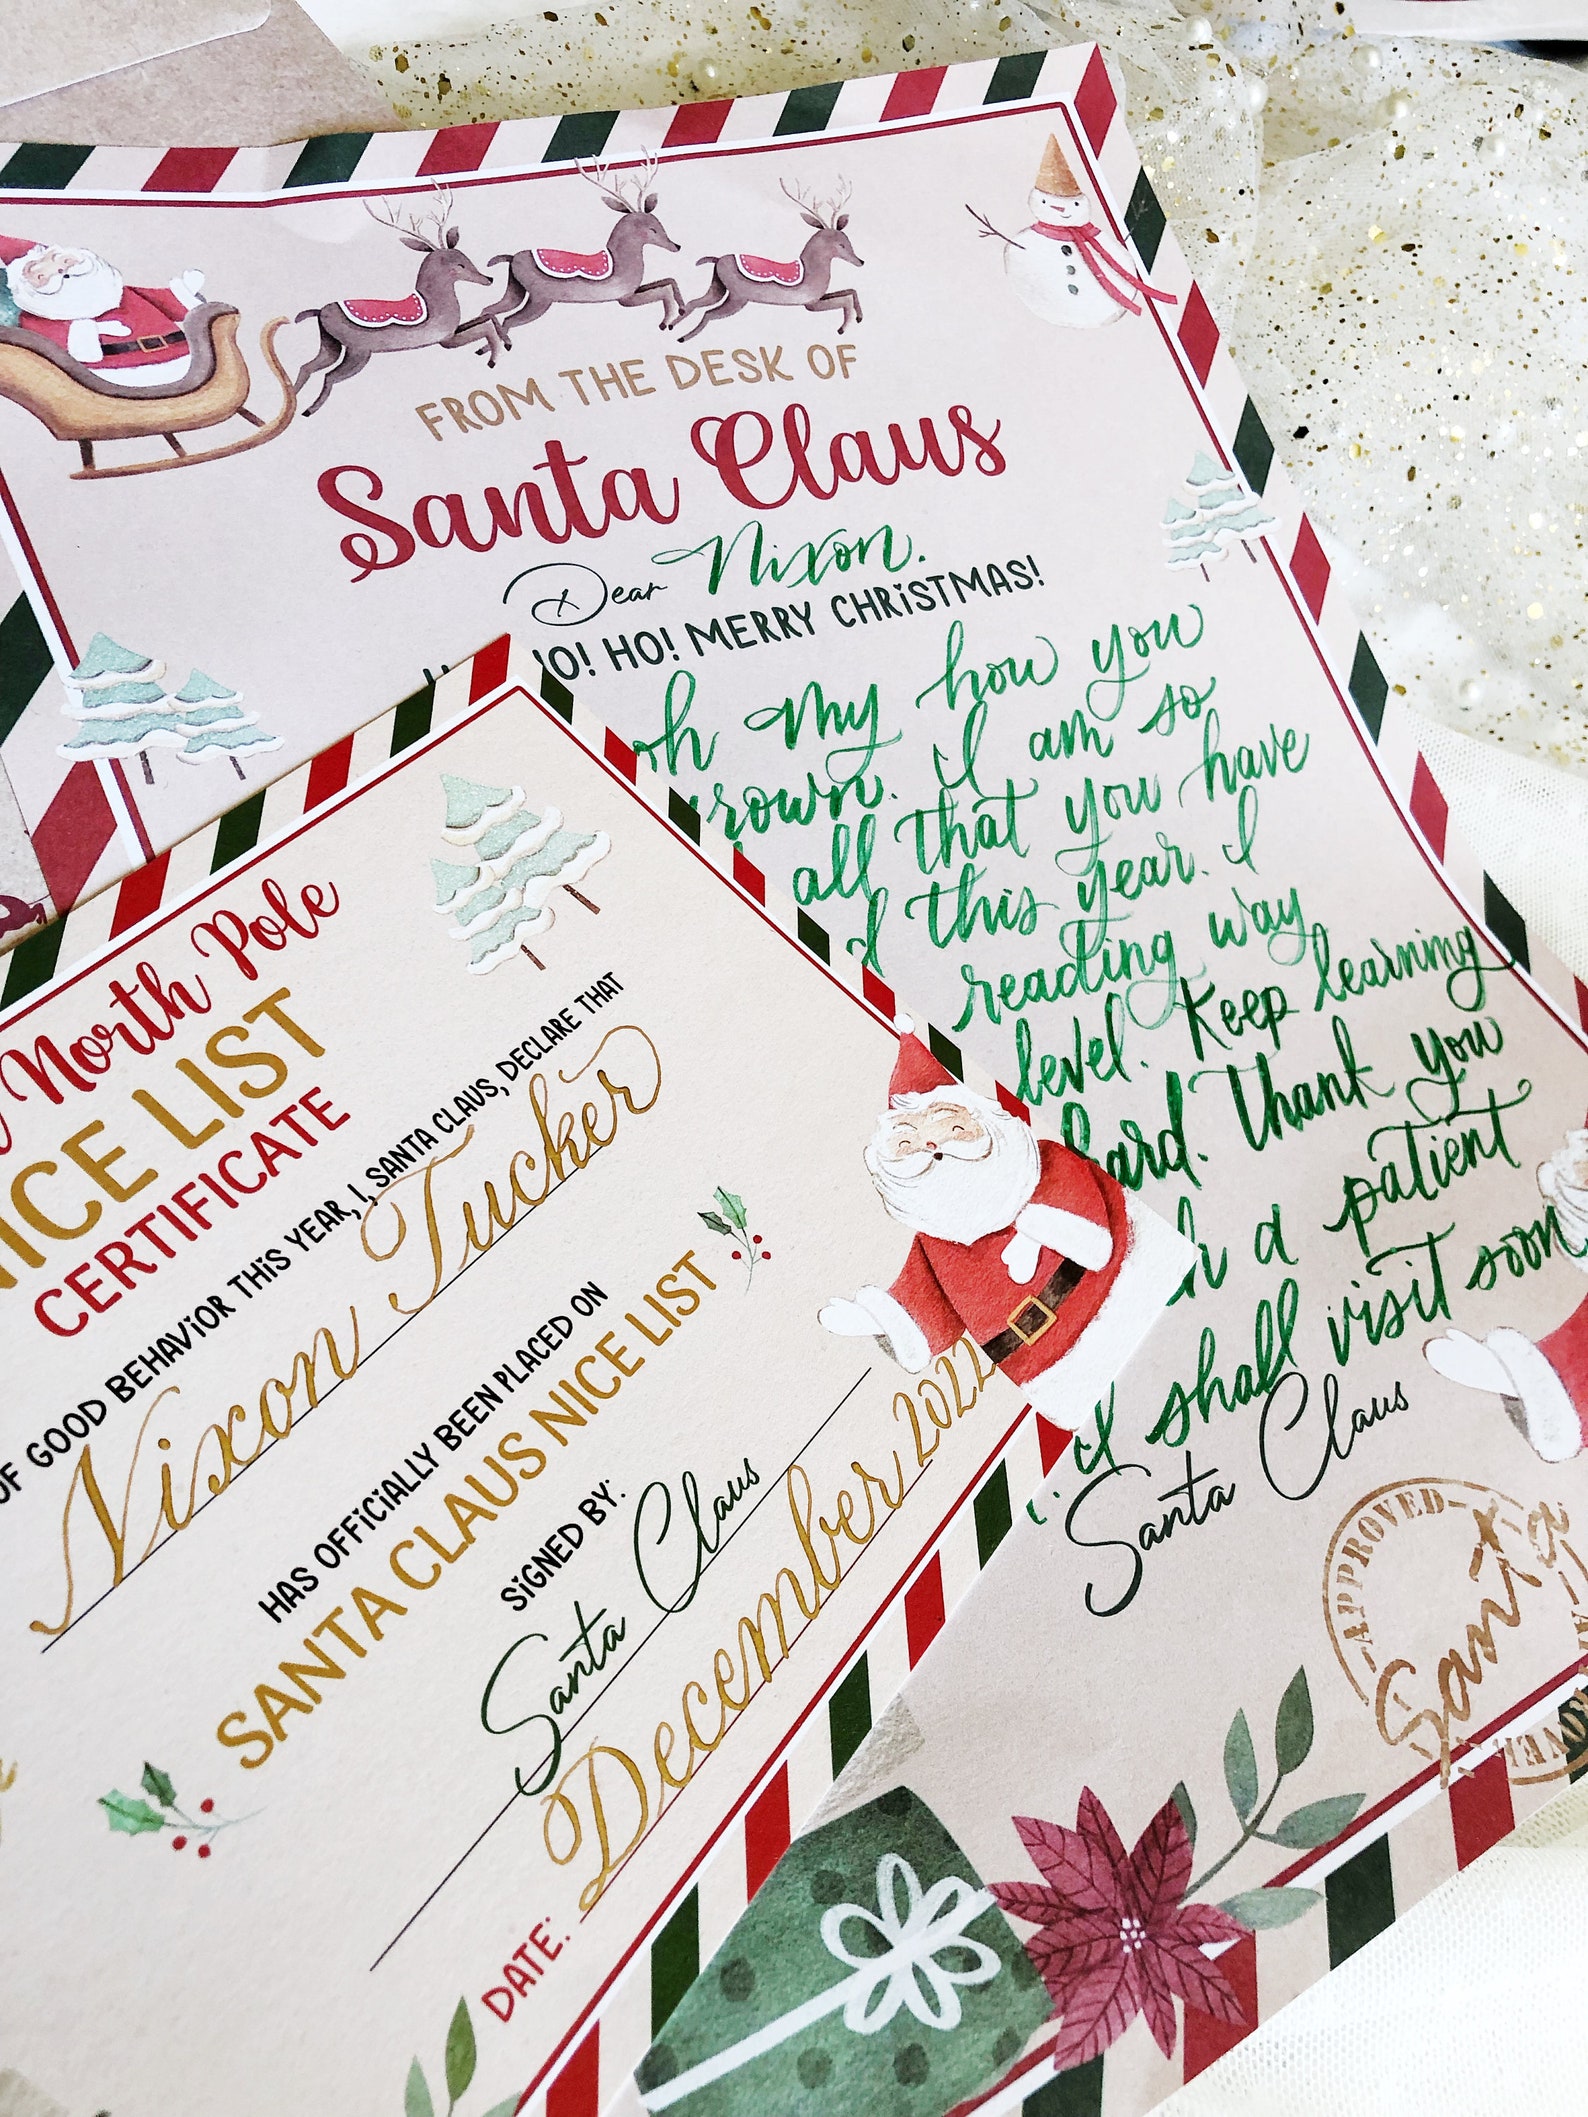 FROM THE DESK OF
Santa Claus
Dear Nixon.
HO! HO! MERRY CHRISTMAS!
oh my how you
grown. I am so
all that you have
this year. I
reading way
level. Keep learning
hard. Thank you
a patient
I shall visit soon
Santa Claus
APPROVED
Santa
North Pole
NICE LIST
CERTIFICATE
OF GOOD BEHAVIOR THIS YEAR, I, SANTA CLAUS, DECLARE THAT
Nixon Tucker
HAS OFFICIALLY BEEN PLACED ON
SANTA CLAUS NICE LIST
SIGNED BY:
Santa Claus
DATE: December 2022